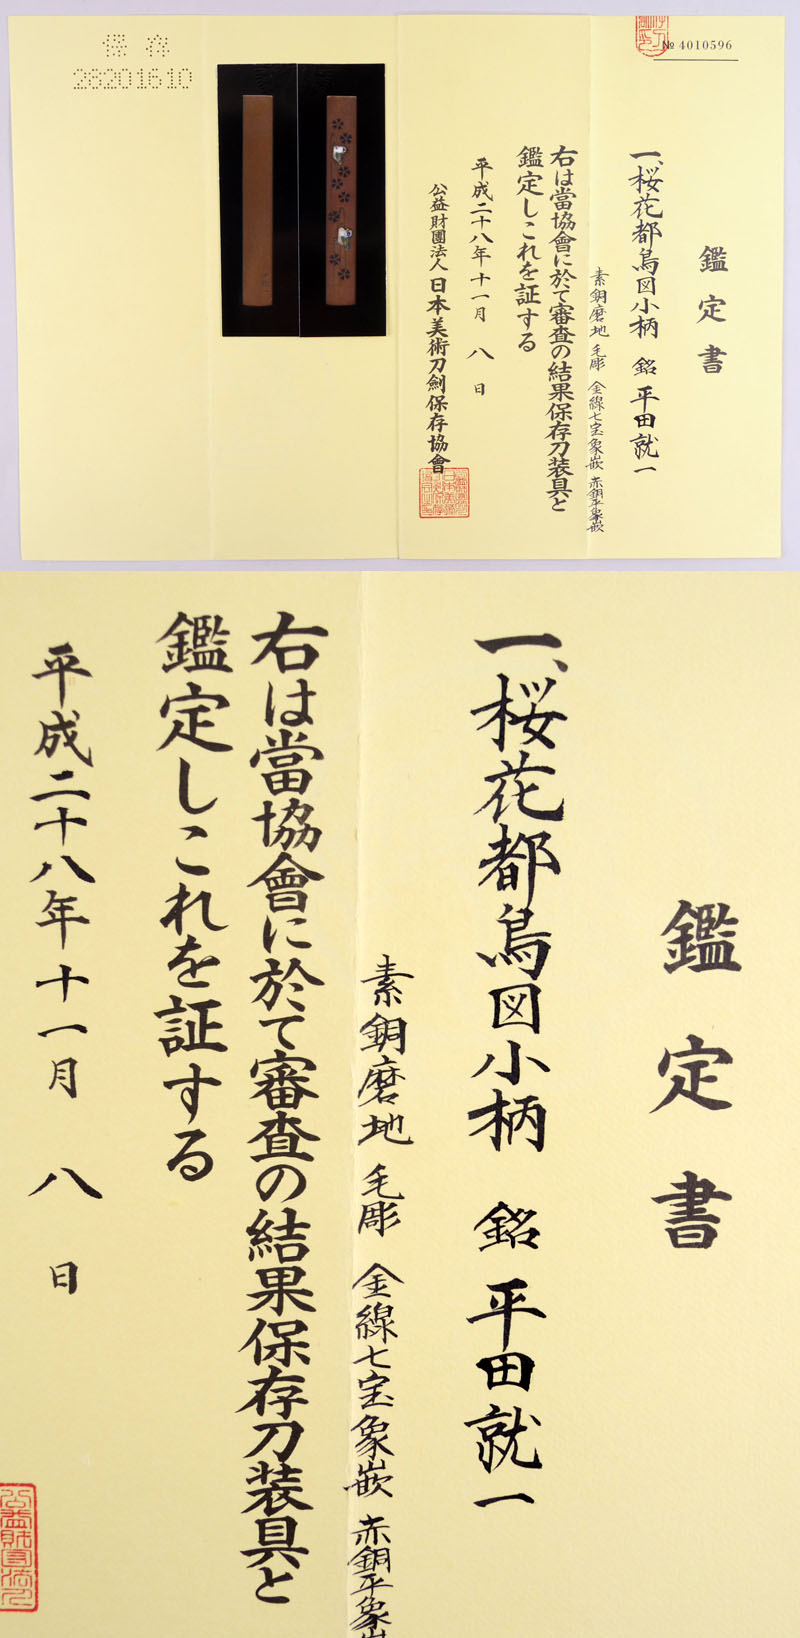 保存
28201610
№ 4010596
鑑定書
一、桜花都鳥図小柄 銘 平田就一
素銅磨地 毛彫 金線七宝象嵌 赤銅平象嵌
右は當協會に於て審査の結果保存刀装具と
鑑定しこれを証する
平成二十八年十一月 八 日
公益財團法人 日本美術刀劍保存協會
鑑定書
一、桜花都鳥図小柄 銘 平田就一
素銅磨地 毛彫 金線七宝象嵌 赤銅平象嵌
右は當協會に於て審査の結果保存刀装具と
鑑定しこれを証する
平成二十八年十一月 八 日